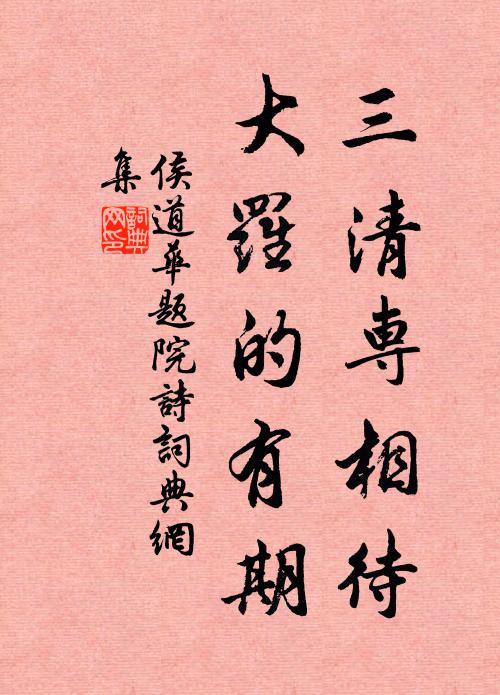 三清専相待
大羅的有期
侯道華題院詩詞典網
集
詞典
网印